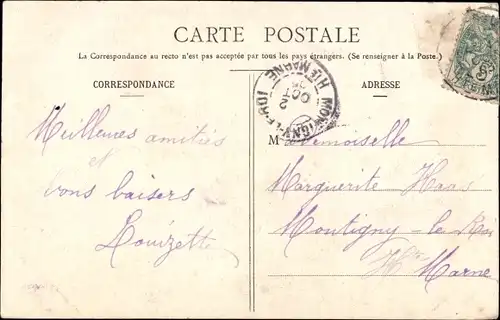 CARTE POSTALE
La Correspondance au recto n'est pas acceptée par tous les pays étrangers. (Se renseigner à la Poste.)
CORRESPONDANCE
ADRESSE
MONTIGNY-LE-ROI
HTE MARNE
2
OCT
Meilleures amitiés
et
bons baisers
Louizette
Mademoiselle
Marguerite Haas
Montigny-le-Roi
Hte Marne